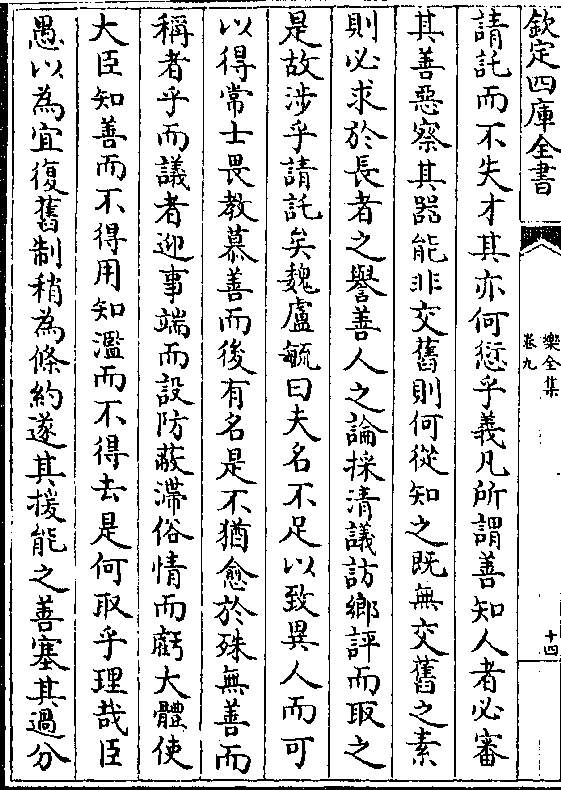 欽定四庫全書
樂全集
卷九
十四
請託而不失才其亦何愆乎義凡所謂善知人者必審
其善惡察其器能非交舊則何從知之既無交舊之素
則必求於長者之譽善人之論採清議訪鄉評而取之
是故涉乎請託矣魏盧毓曰夫名不足以致異人而可
以得常士畏教慕善而後有名是不猶愈於殊無善而
稱者乎而議者迎事端而設防蔽滯俗情而虧大體使
大臣知善而不得用知濫而不得去是何取乎理哉臣
愚以為宜復舊制稍為條約遂其援能之善塞其過分